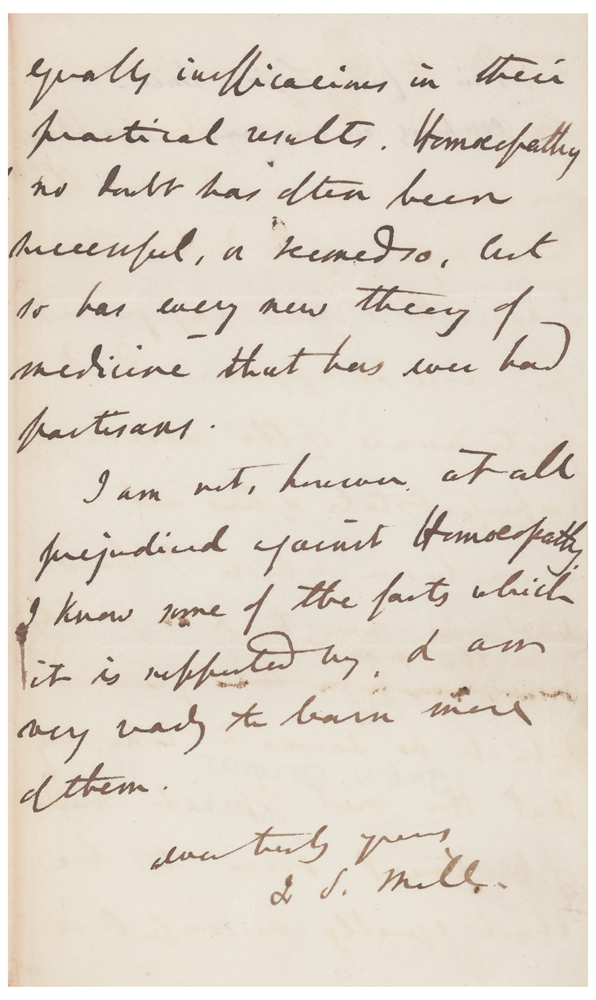 equally inefficacious in their
practical results. Homœopathy
no doubt has often been
successful, or seemed so, but
so has every new theory of
medicine that has ever had
partisans.
I am not, however, at all
prejudiced against Homœopathy.
I know some of the facts which
it is supported by, & am
very ready to learn more
of them.
ever truly yours
J S. Mill.